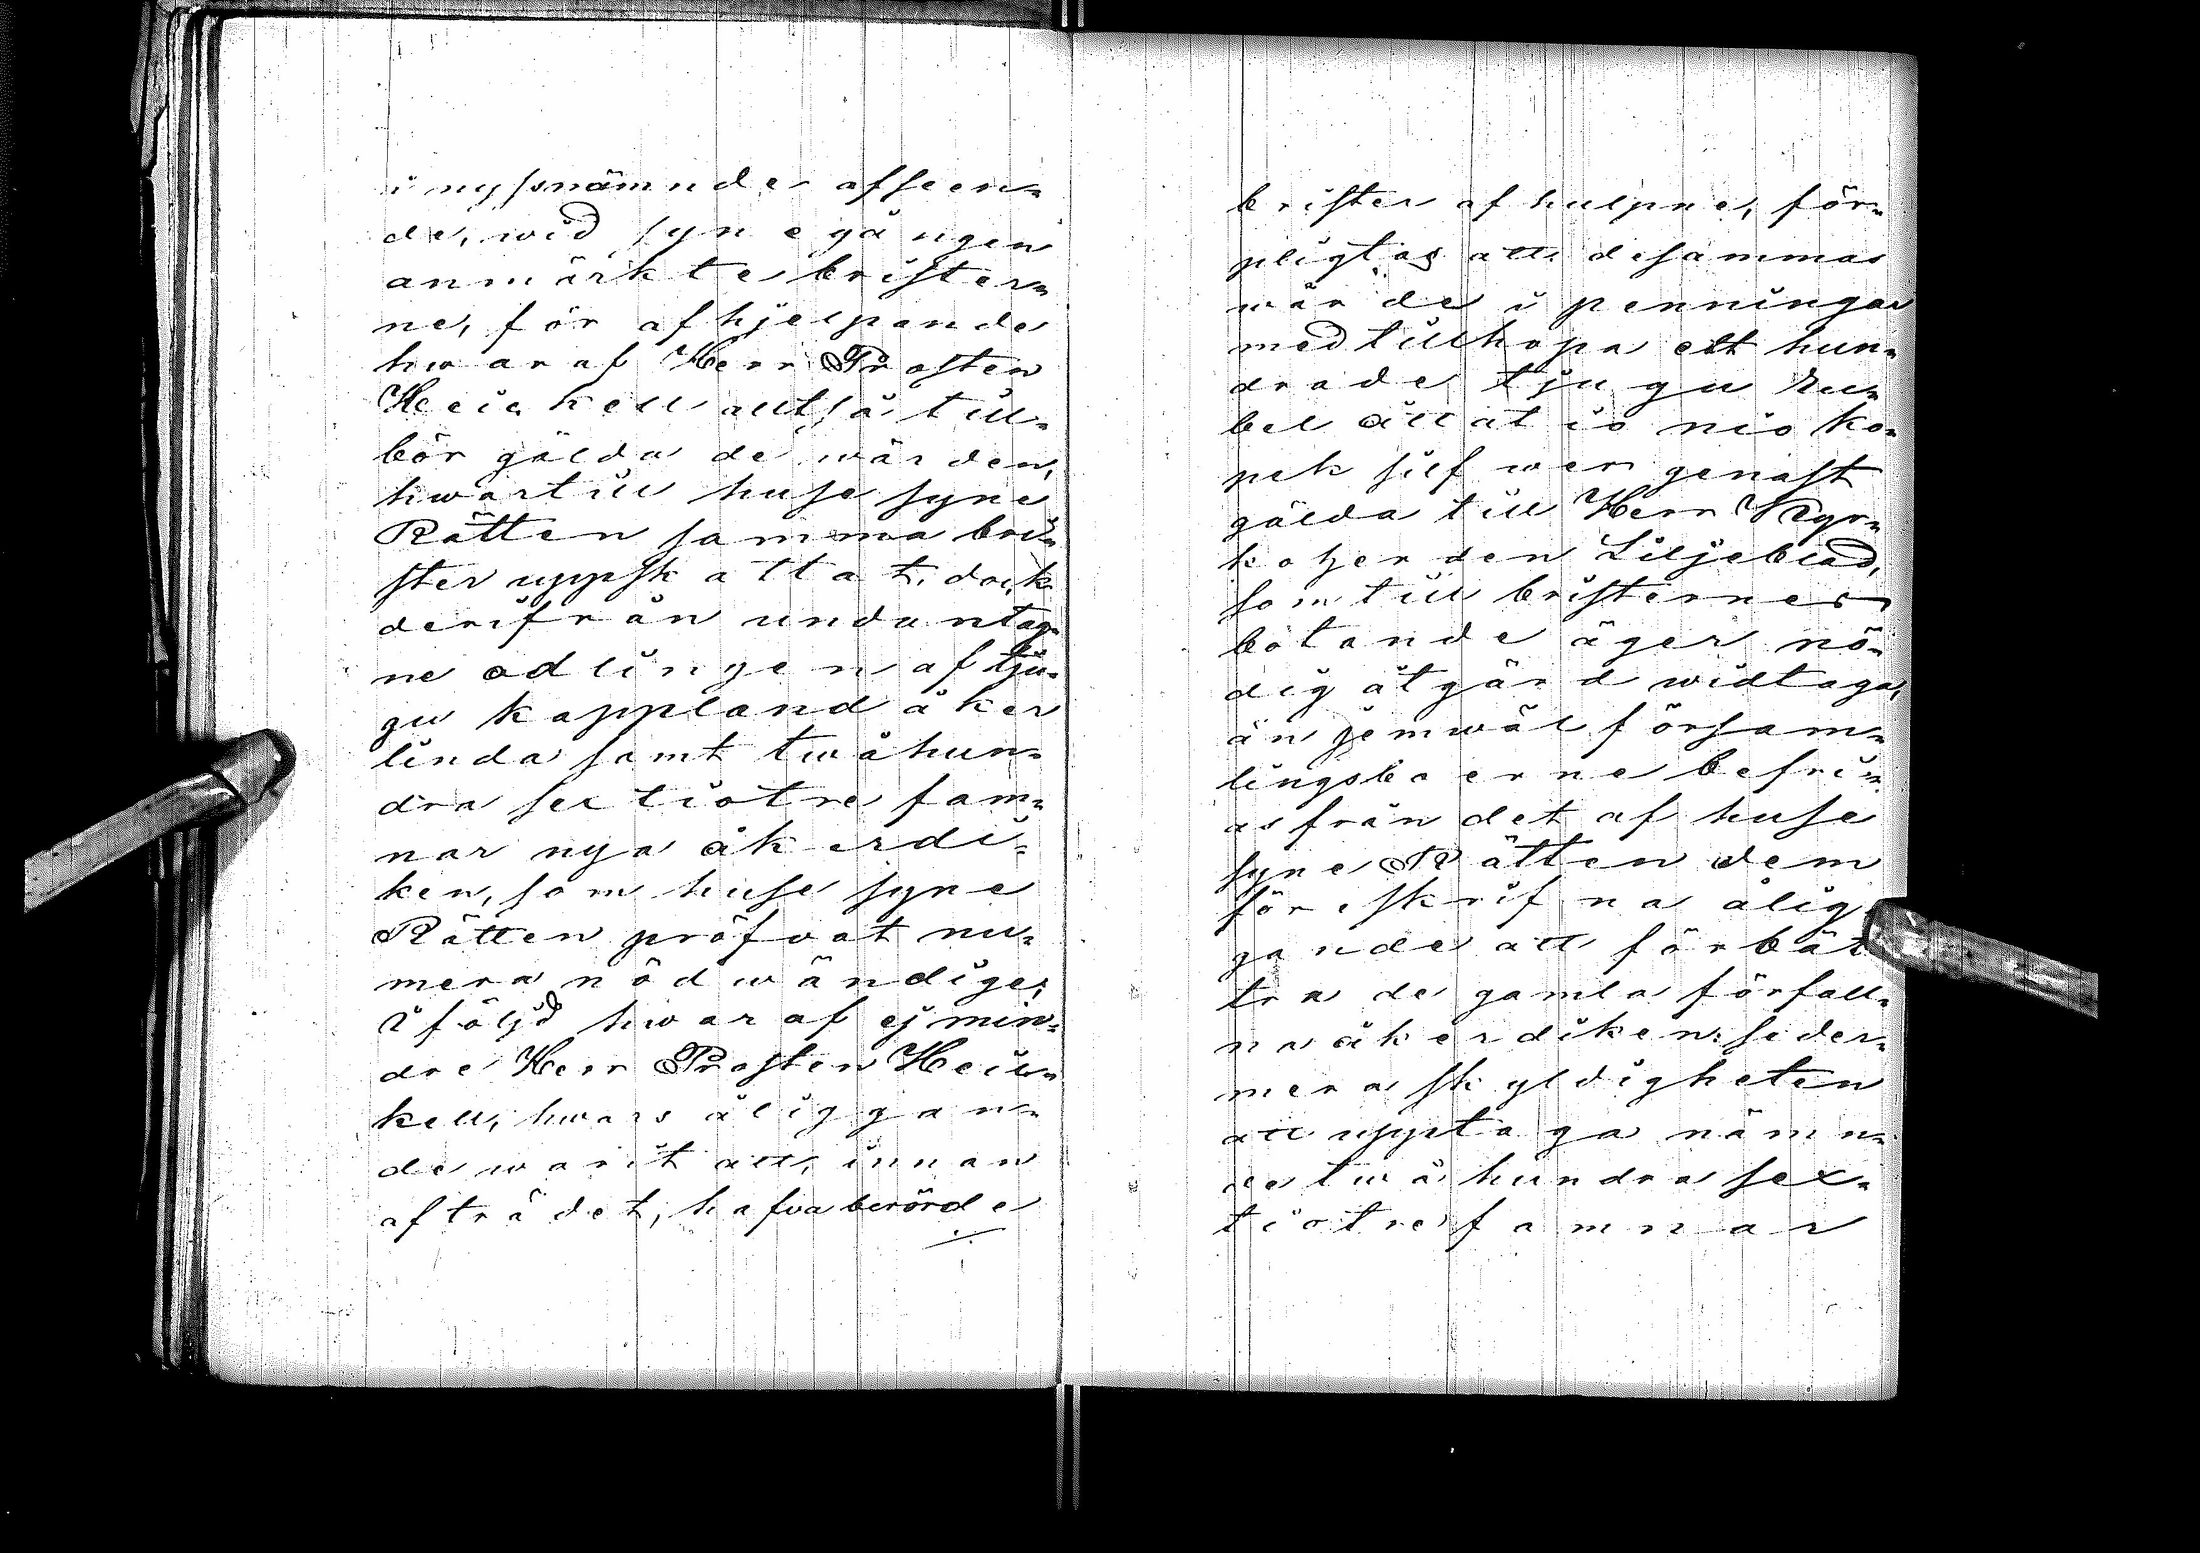 i nyssnämnde afseen=
de, wid synegången
anmärkte brister=
ne, för afhjelpande
hwaraf Herr Prosten
Heickell alltså till=
bör gälda de wärden,
hwartill husesyne
Rätten samma bri=
ster uppskattat, dock
derifrån undantag=
ne odlingen af tju=
gu kappland åker
linda samt twåhun=
dra sextiotre fam=
nar nya åkerdi=
ken, som husesyne
Rätten pröfvat nu=
mera nödwändige;
i följd hwaraf ej min=
dre Herr Prosten Heic=
kell, hwars åliggan=
de warit att, innan
afträdet, hafva berörde
brister afhulpne, för=
pligtas att desammas
wärde i penningar
med tillhopa ett hun=
drade tjugu ru=
bel åttatio nio ko=
pek silfwer genast
gälda till Herr Kyr=
koherden Liljeblad,
som till bristernes
botande äger nö=
dig åtgärd widtaga,
än jemwäl försam=
lingsboerne befri=
as från det af huse
syne Rätten dem
föreskrifna ålig=
gande att förbät
tra de gamla förfall=
na åkerdiken: seder=
mera skyldigheten
att upptaga nämn=
de twåhundra sex=
tiotre famnar